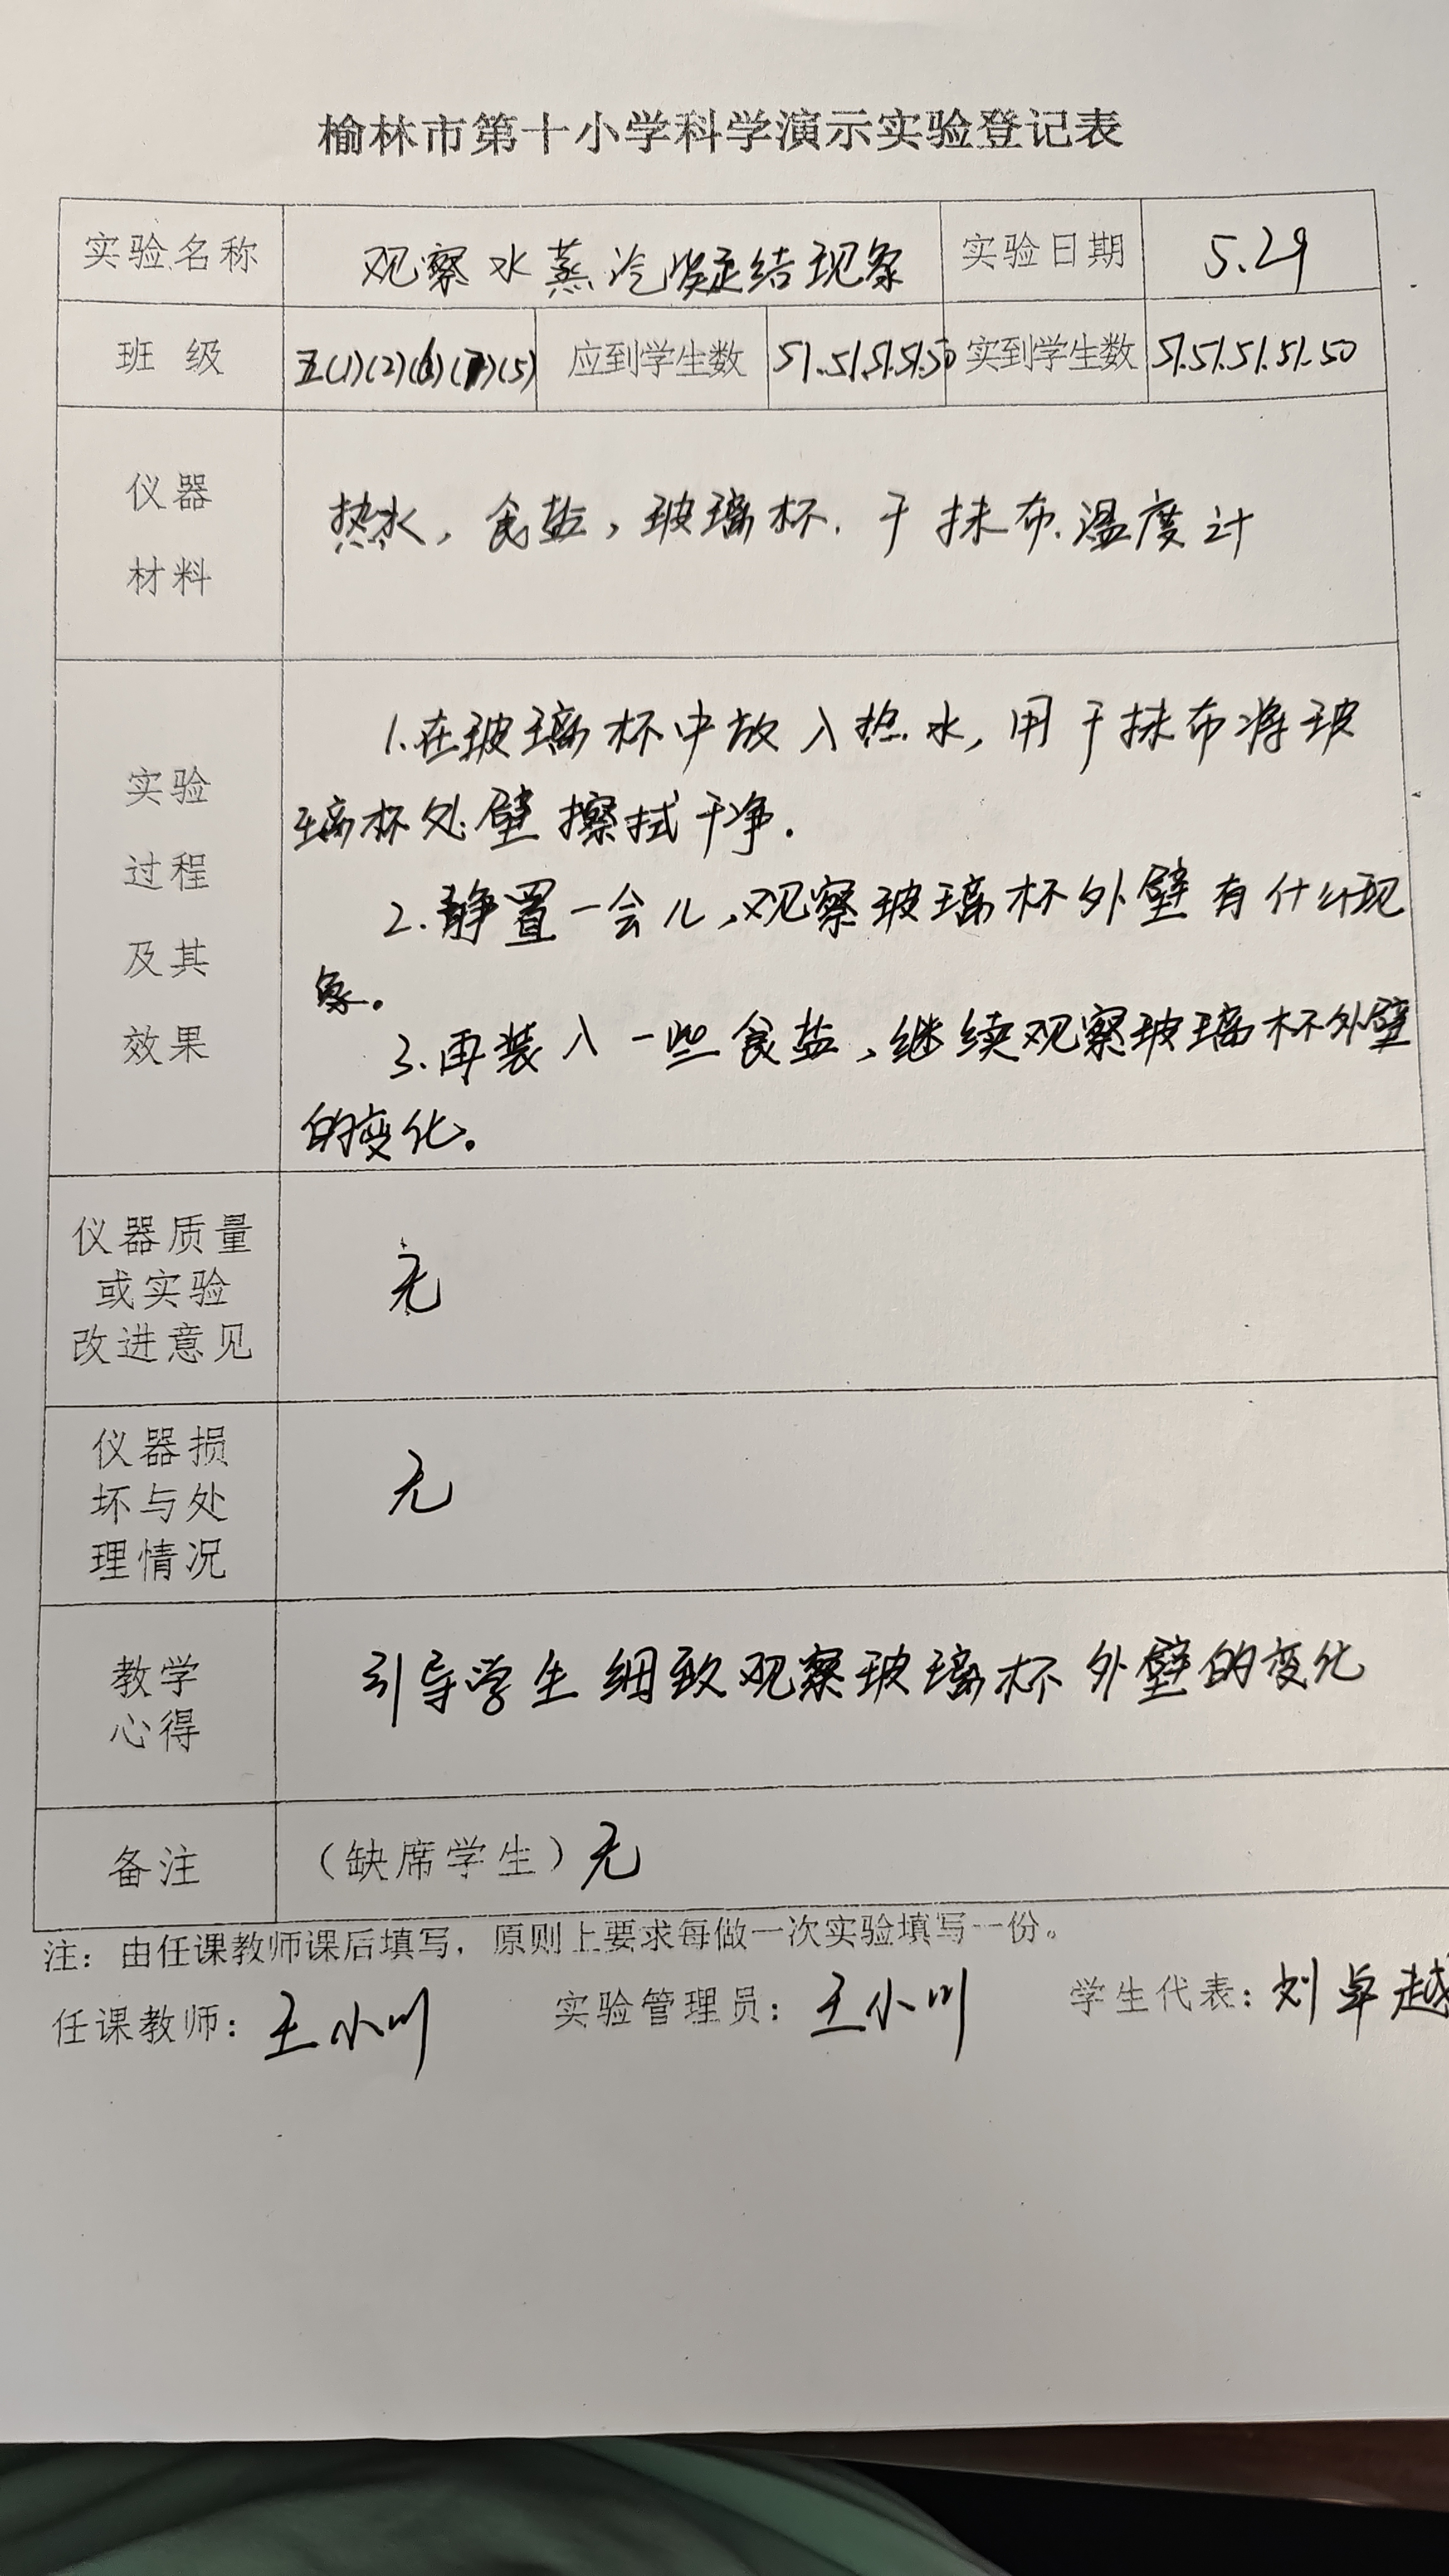 榆林市第十小学科学演示实验登记表
实验名称 观察水蒸汽凝结现象 实验日期 5.29
班级 五(1)(2)(6)(7)(5) 应到学生数 51.51.51.51.50 实到学生数 51.51.51.51.50
仪器
材料
热水，食盐，玻璃杯.干抹布.温度计
实验
过程
及其
效果
1.在玻璃杯中放入热水，用干抹布将玻
璃杯处壁擦拭干净.
2.静置一会儿，观察玻璃杯外壁有什么现
象。
3.再装入一些食盐，继续观察玻璃杯外壁
的变化。
仪器质量
或实验
改进意见
无
仪器损
坏与处
理情况
无
教学
心得
引导学生细致观察玻璃杯外壁的变化
备注 （缺席学生）无
注：由任课教师课后填写，原则上要求每做一次实验填写一份。
任课教师：王小川 实验管理员：王小川 学生代表：刘卓越